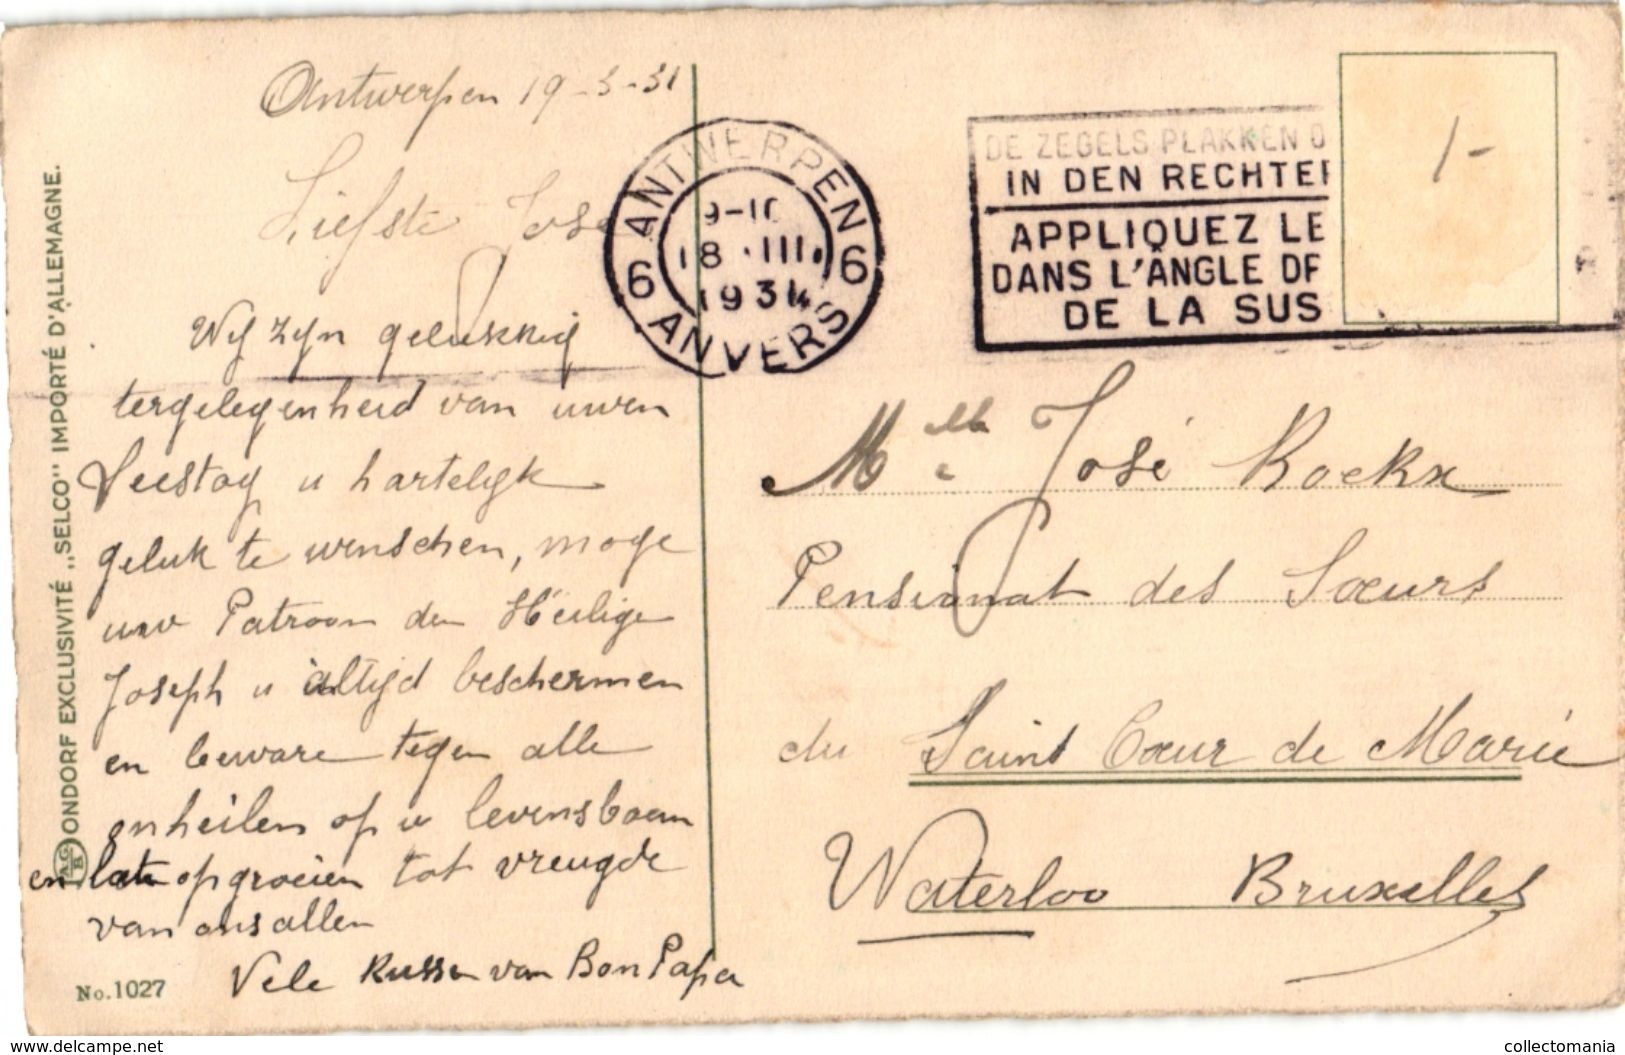 Antwerpen 19-3-31
Liefste José
Wij zijn gelukkig
tergelegenheid van uwen
Feestdag u hartelijk
geluk te wenschen, moge
uw Patroon den H'eilige
Joseph u altijd beschermen
en beware tegen alle
onheilen op u levensboom
en laten opgroeien tot vreugde
van ons allen
Vele Kussen van Bon Papa
No. 1027
ONDORF EXCLUSIVITÉ „SELCO" IMPORTÉ D'ALLEMAGNE.
A.G.
B
ANTWERPEN
9-10
18 · III.
1934
6 6
ANVERS
DE ZEGELS PLAKKEN O
IN DEN RECHTER
APPLIQUEZ LE
DANS L'ANGLE DR
DE LA SUS
1-
Melle José Rockx
Pensionat des Sœurs
du Saint Cœur de Marie
Waterloo Bruxelles
www.delcampe.net
collectomania